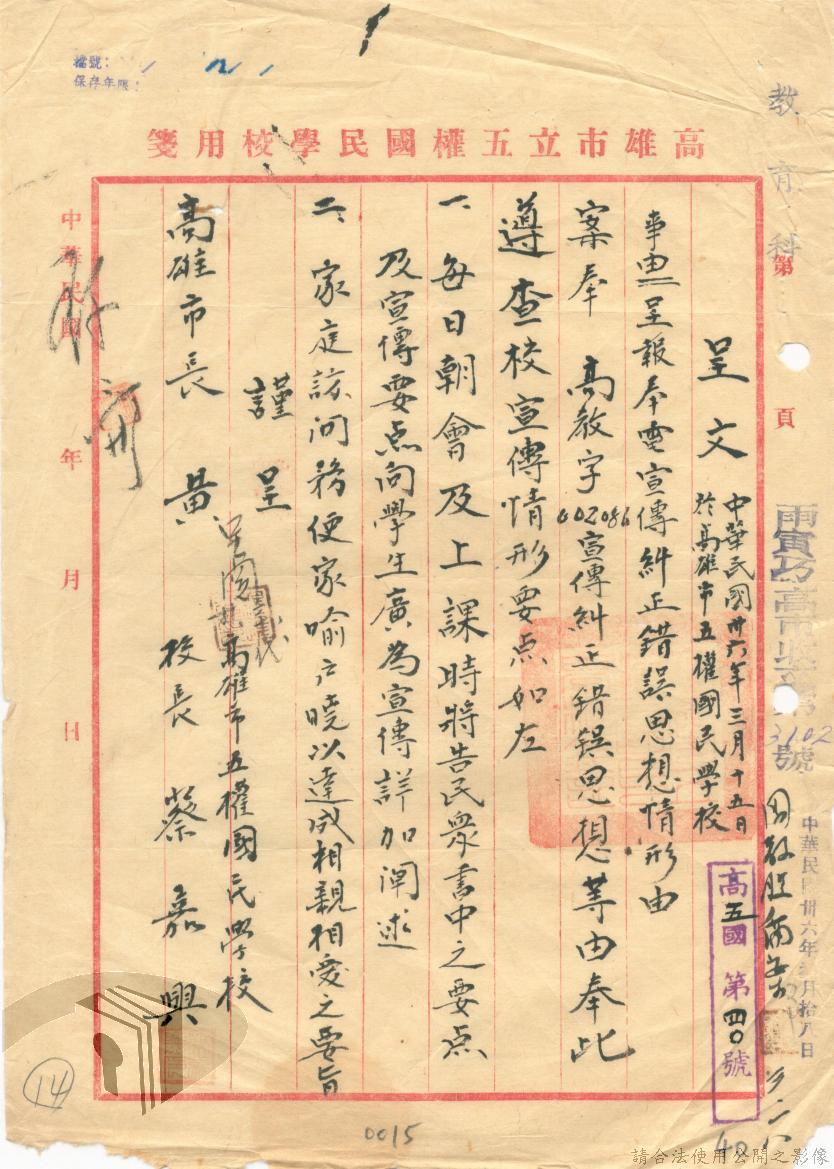 檔號：
保存年限：
教育科
高雄市立五權國民學校用箋
第 頁
呈文
中華民國卅六年三月十五日
於高雄市五權國民學校
事由 呈報奉電宣傳糾正錯誤思想情形由
案奉 高教字002086宣傳糾正錯誤思想等由奉此
遵查校宣傳情形要点如左
一、每日朝會及上課時將告民眾書中之要点
及宣傳要点向學生廣為宣傳詳加闡述
二、家庭訪问務使家喻户曉以達成相親相愛之要旨
謹呈
高雄市長 黃
高雄市五權國民學校
校長 蔡嘉興
中華民國 年 月 日
3102號
中華民國卅六年參月拾八日
高五國第四〇號
14
0015
40
請合法使用公開之影像